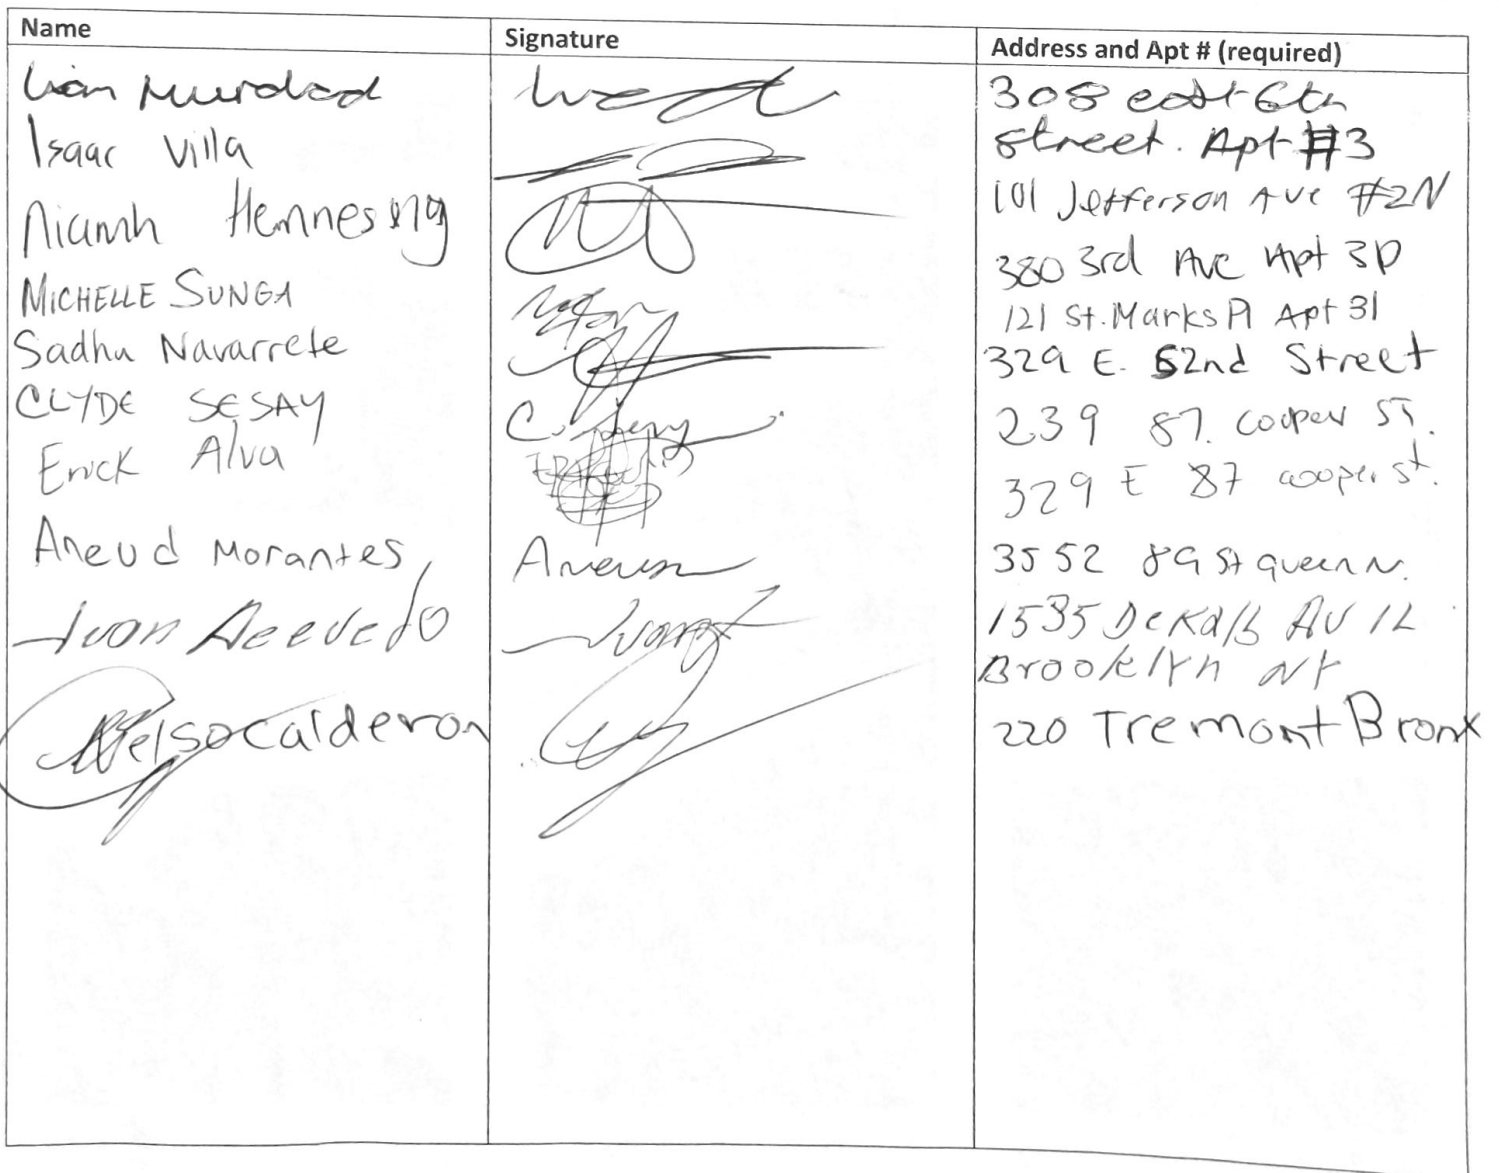 Name Signature Address and Apt # (required)
Lian Murdad 308 east 6th
Street. Apt #3
Isaac Villa 101 Jefferson Ave #2N
Niamh 380 3rd Ave Apt 3D
MICHELLE SUNGA 121 St. Marks Pl Apt 31
Sadhu Navarrete 329 E. 52nd Street
CLYDE SESAY 239 87. cooper ST.
Erick Alva 329 E 87 cooper st.
Aneud Morantes Aneud 3552 89 St queen
Ivan Acevedo Ivan 1535 DeKalb AV 1L
Brooklyn NY
Nelsocalderon 220 Tremont Bronx